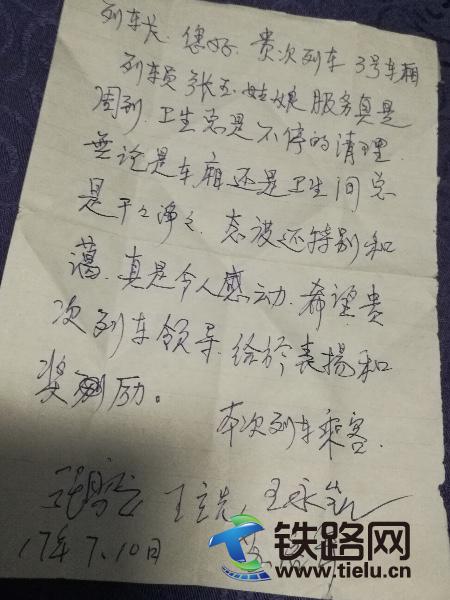 列车长.您好.贵次列车3号车厢
列车员张玉姑娘服务真是
周到.卫生总是不停的清理.
无论是车厢还是卫生间总
是干々净々.态度还特别和
蔼.真是令人感动.希望贵
次列车领导.给於表揚和
奖励。
本次列车乘客.
王立先,王永
17年7.10日
铁路网
www.tielu.cn